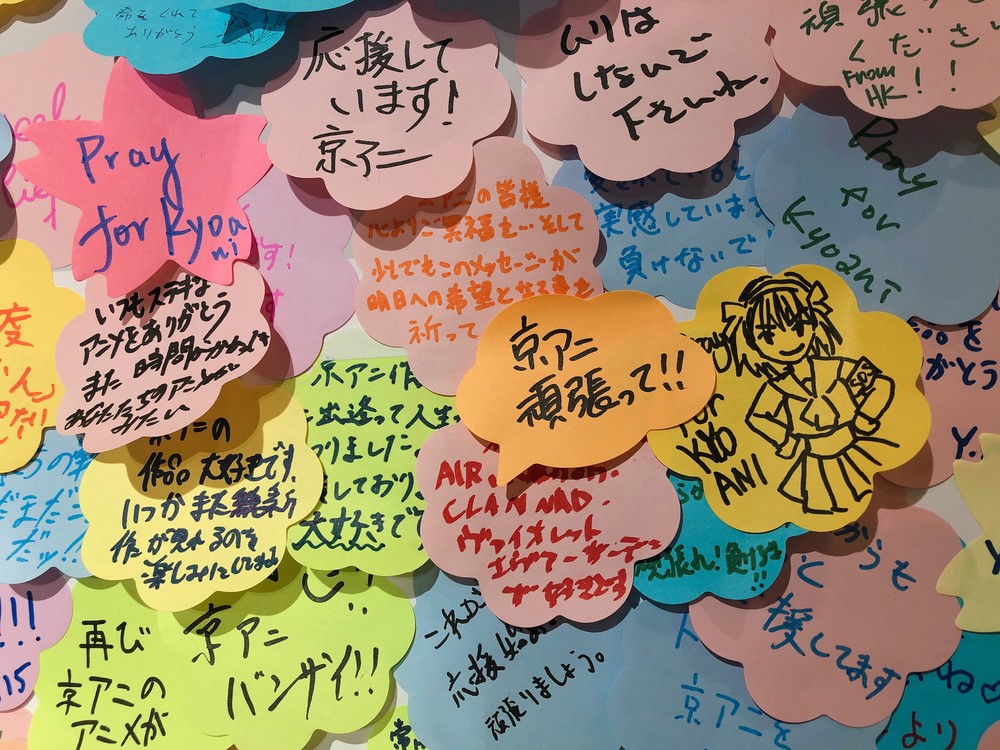 ありがとう
応援して
います!
京アニ
ムリは
しないで
下さいね。
頑張って
ください!!
From
HK!!
Pray
for Kyoa
ni
の皆様
心よりご冥福を…そして
少しでもこのメッセージが
明日への希望となる事を
祈って
実感しています
負けないで
Pray
for
Kyoani
いつもステキな
アニメをありがとう
また 時間がかかっても
あなたたちのアニメが
みたい
京アニ
頑張って!!
for
KYO
ANI
京アニ作
出逢って人生
りました。
しており
大好きで
の
作品大好きです。
いつかまた
作が見れるのを
楽しみにしてます
AIR
CLANNAD.
ヴァイオレット
エヴァーガーデン
が好きです
頑張れ!負けるな
!!
からも
援してます
再び
京アニの
アニメが
京アニ
バンザイ!!
応援
頑張りましょう。
京アニを
より
!!!
15